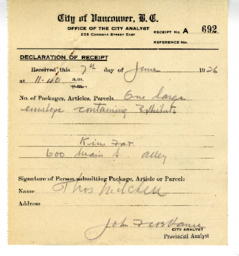 City of Vancouver, B.C.
OFFICE OF THE CITY ANALYST
RECEIPT No. A 692
236 CORDOVA STREET EAST
REFERENCE No.
DECLARATION OF RECEIPT
Received this 7th day of June 1926
at 11.40 a.m.
No. of Packages, Articles, Parcel: One large
envelope containing Exhibits
600 Main St. alley
Signature of Person submitting Package, Article or Parcel:
Name Thos Mitchell
Address
CITY ANALYST
Provincial Analyst